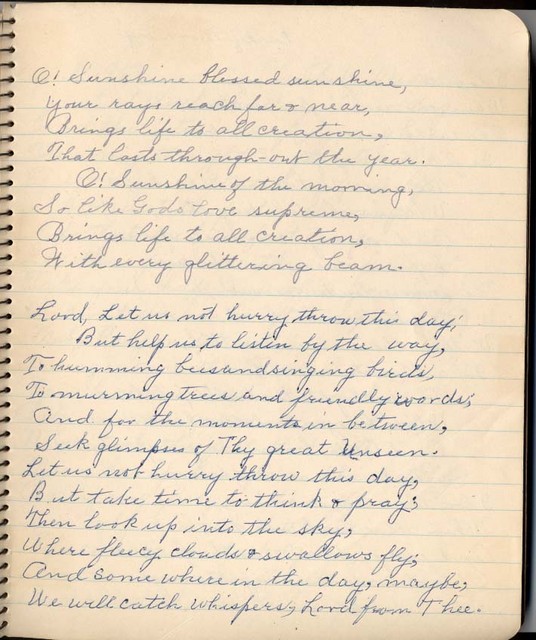 O! Sunshine blessed sunshine,
Your rays reach far & near,
Brings life to all creation,
That lasts through-out the year.
O! Sunshine of the morning,
So like Gods love supreme,
Brings life to all creation,
With every glittering beam.
Lord, Let us not hurry throw this day;
But help us to listen by the way,
To humming bees and singing birds,
To murming trees and friendly words;
And for the moments in between,
Seek glimpses of Thy great Unseen.
Let us not hurry throw this day,
But take time to think & pray;
Then look up into the sky,
Where fleecy clouds & swallows fly;
And some where in the day, maybe,
We will catch whispers, Lord from Thee.